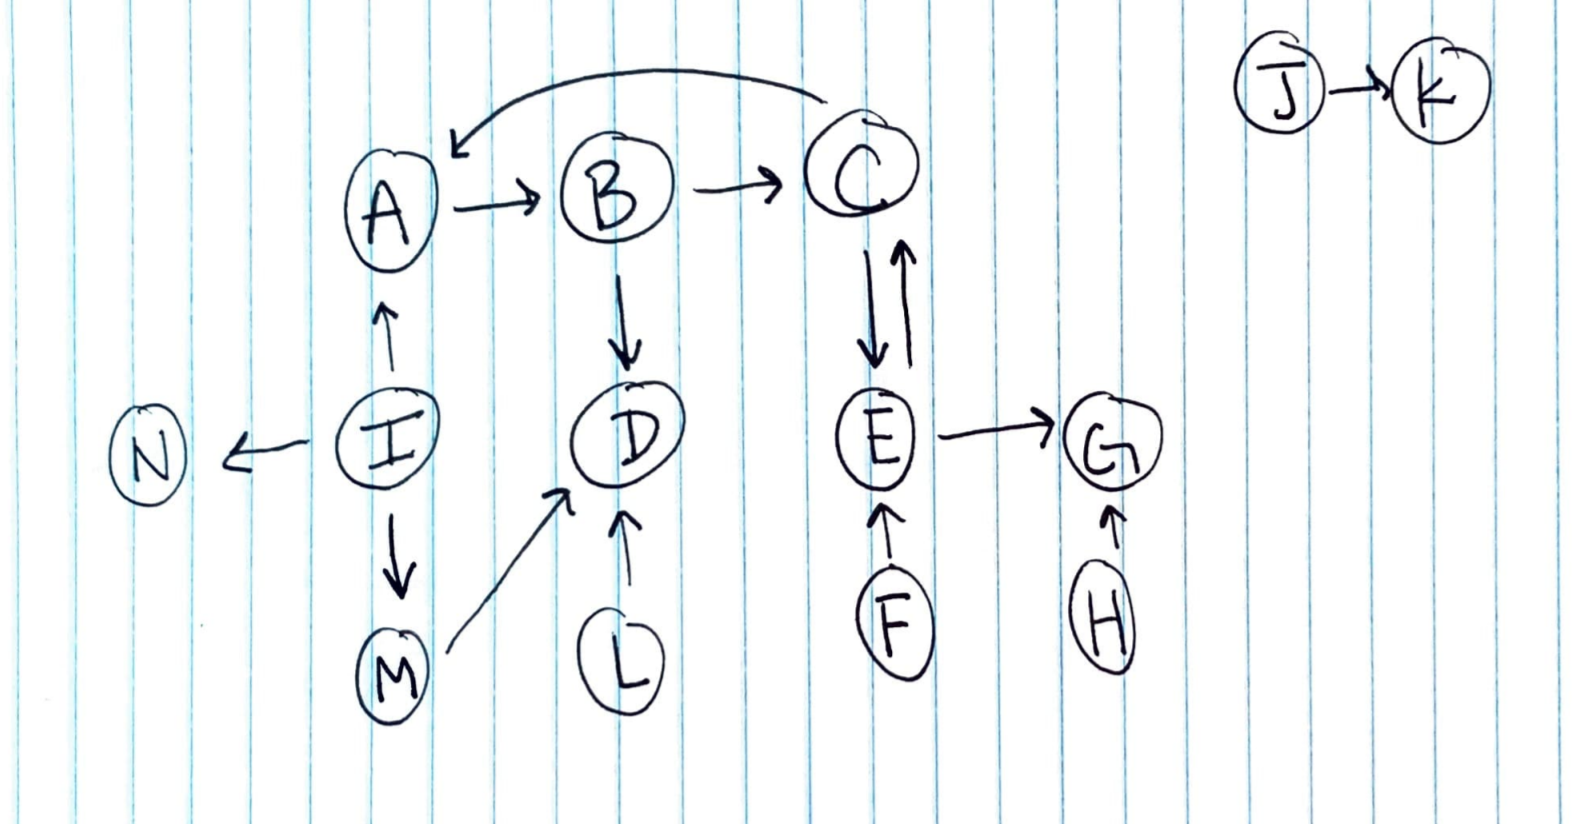 J K
A B C
N I D E G
M L F H